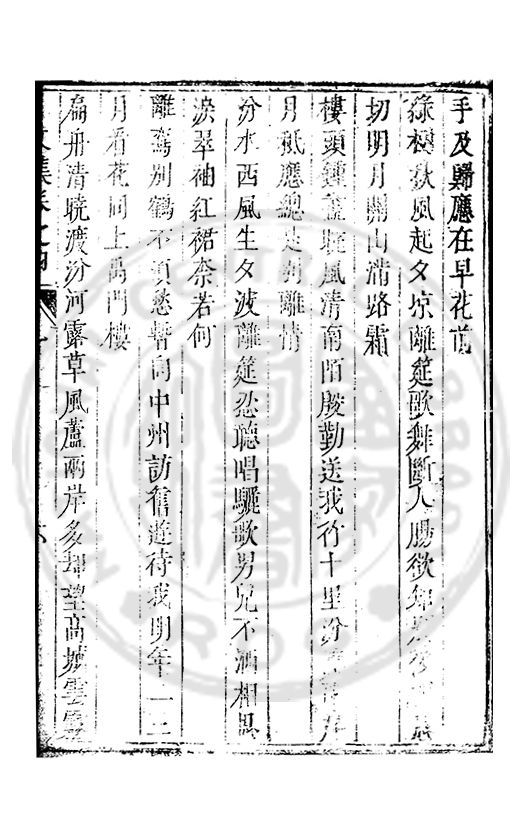 手及歸應在早花前
綠樹秋風起夕涼離筵歌舞斷人腸欲知
切明月關山滿路霜
樓頭鍾鼓疑風清南陌殷勤送我行十里汾
月秪應總是別離情
汾水西風生夕波離筵忍聽唱驪歌男兒不洒相思
淚翠袖紅裙奈若何
離鸞別鶴不須愁暫向中州訪舊遊待我明年二三
月看花同上禹門樓
扁舟清曉渡汾河露草風蘆兩岸多却望高城雲
文集卷之四